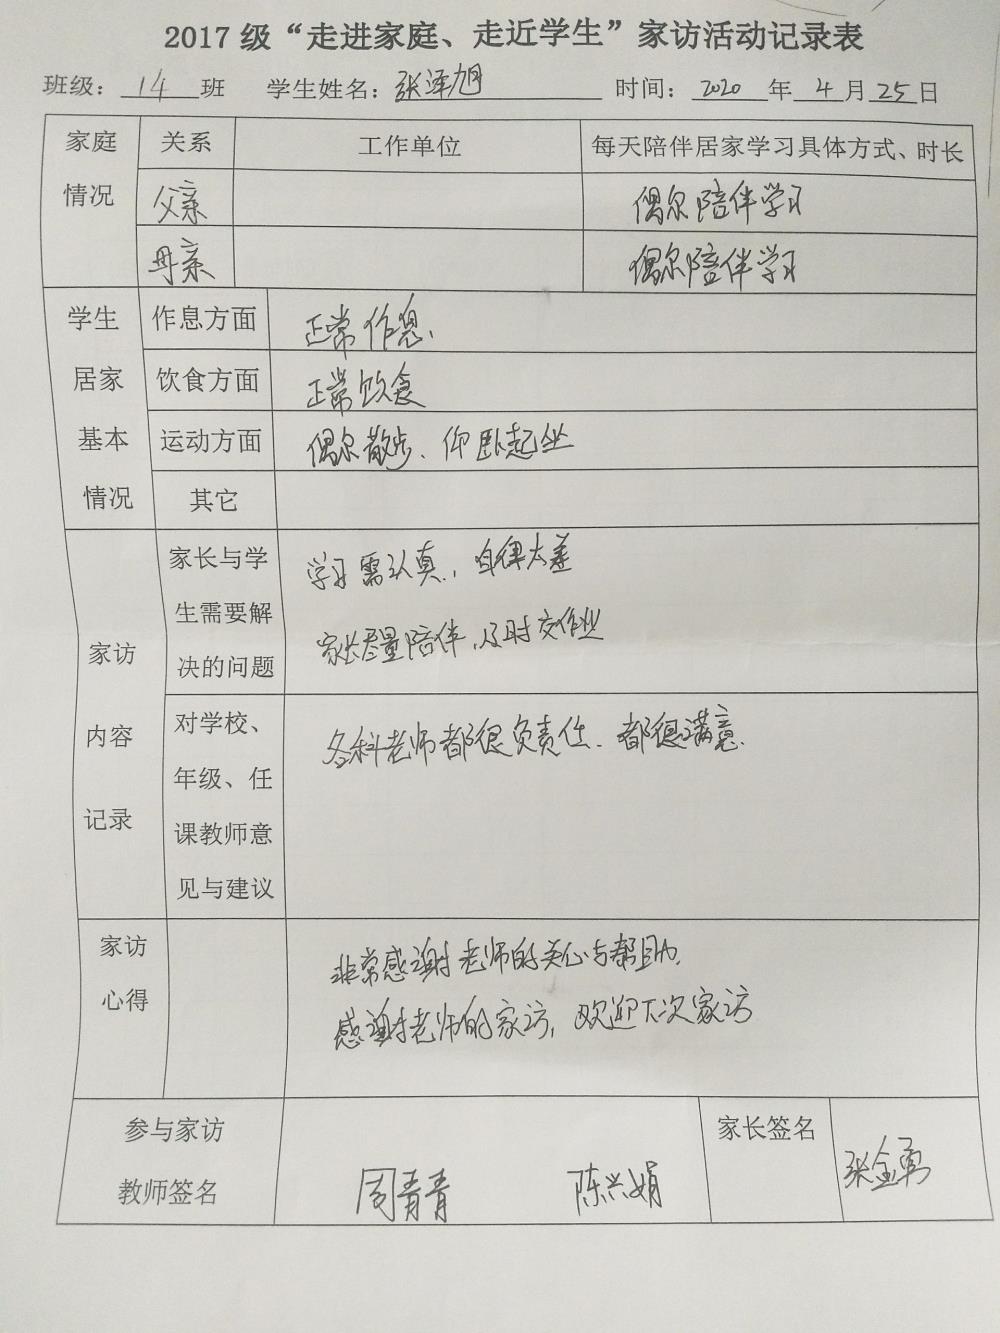 2017级“走进家庭、走近学生”家访活动记录表
班级：14班 学生姓名：张泽旭 时间：2020年4月25日
家庭 关系 工作单位 每天陪伴居家学习具体方式、时长
情况 父亲 偶尔陪伴学习
母亲 偶尔陪伴学习
学生 作息方面 正常作息.
居家 饮食方面 正常饮食
基本 运动方面 偶尔散步、仰卧起坐
情况 其它
家长与学 学习需认真，自律太差
生需要解
家访 决的问题 家长尽量陪伴，及时交作业
对学校、
内容 年级、任 各科老师都很负责任、都很满意.
记录 课教师意
见与建议
家访 非常感谢老师的关心与帮助.
心得 感谢老师的家访，欢迎下次家访
参与家访 家长签名
教师签名 周青青 陈兴娟 张金勇